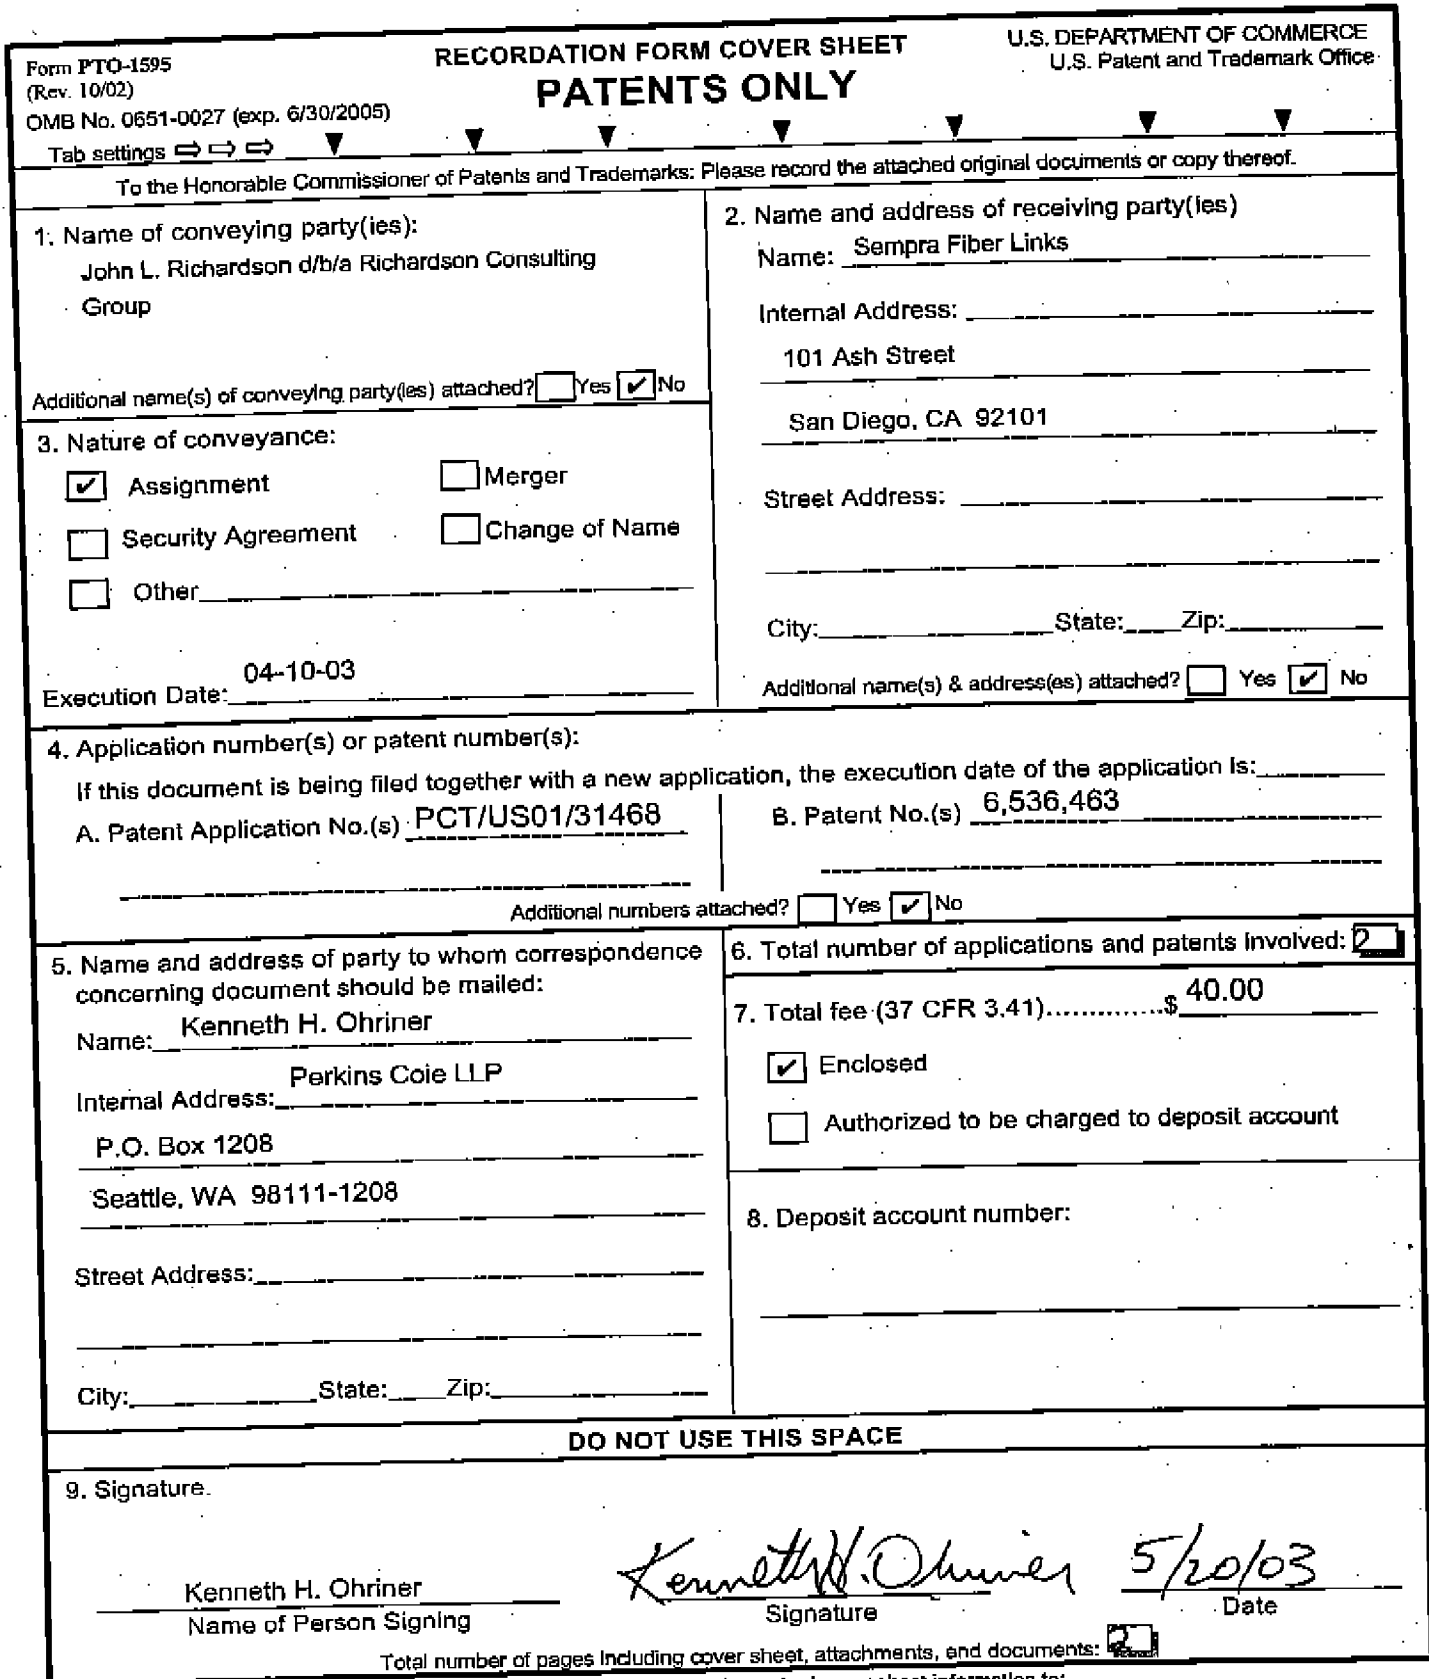 Form PTO-1595
(Rev. 10/02)
OMB No. 0651-0027 (exp. 6/30/2005)
Tab settings ⇨ ⇨ ⇨ ▼ ▼ ▼ ▼ ▼ ▼ ▼
RECORDATION FORM COVER SHEET
PATENTS ONLY
U.S. DEPARTMENT OF COMMERCE
U.S. Patent and Trademark Office
To the Honorable Commissioner of Patents and Trademarks: Please record the attached original documents or copy thereof.
1. Name of conveying party(ies):
John L. Richardson d/b/a Richardson Consulting
Group
Additional name(s) of conveying party(ies) attached? Yes ✔ No
2. Name and address of receiving party(ies)
Name: Sempra Fiber Links
Internal Address:
101 Ash Street
San Diego, CA 92101
Street Address:
City: State: Zip:
Additional name(s) & address(es) attached? Yes ✔ No
3. Nature of conveyance:
✔ Assignment Merger
Security Agreement Change of Name
Other
Execution Date: 04-10-03
4. Application number(s) or patent number(s):
If this document is being filed together with a new application, the execution date of the application is:
A. Patent Application No.(s) PCT/US01/31468
B. Patent No.(s) 6,536,463
Additional numbers attached? Yes ✔ No
5. Name and address of party to whom correspondence
concerning document should be mailed:
Name: Kenneth H. Ohriner
Perkins Coie LLP
Internal Address:
P.O. Box 1208
Seattle, WA 98111-1208
Street Address:
City: State: Zip:
6. Total number of applications and patents involved: 2
7. Total fee (37 CFR 3.41)..............$ 40.00
✔ Enclosed
Authorized to be charged to deposit account
8. Deposit account number:
DO NOT USE THIS SPACE
9. Signature.
Kenneth H. Ohriner Kenneth H. Ohriner 5/20/03
Name of Person Signing Signature Date
Total number of pages including cover sheet, attachments, and documents: 2